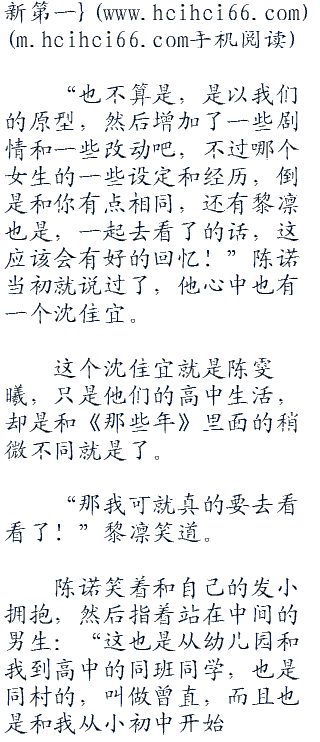 新第一}(www.hcihci66.com)
(m.hcihci66.com手机阅读)
“也不算是，是以我们
的原型，然后增加了一些剧
情和一些改动吧，不过哪个
女生的一些设定和经历，倒
是和你有点相同，还有黎凛
也是，一起去看了的话，这
应该会有好的回忆！”陈诺
当初就说过了，他心中也有
一个沈佳宜。
这个沈佳宜就是陈雯
曦，只是他们的高中生活，
却是和《那些年》里面的稍
微不同就是了。
“那我可就真的要去看
看了！”黎凛笑道。
陈诺笑着和自己的发小
拥抱，然后指着站在中间的
男生：“这也是从幼儿园和
我到高中的同班同学，也是
同村的，叫做曾直，而且也
是和我从小初中开始